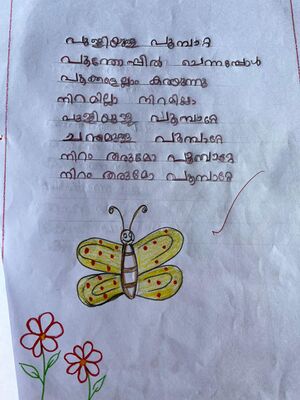 പുള്ളിയുള്ള പൂമ്പാറ്റ
പൂന്തോപ്പിൽ ചെന്നപ്പോൾ
പൂക്കളെല്ലാം കരയുന്നു
നിറമില്ലാ നിറമില്ലാ
പുള്ളിയുള്ള പൂമ്പാറ്റേ
ചന്തമുള്ള പൂമ്പാറ്റേ
നിറം തരുമോ പൂമ്പാറ്റേ
നിറം തരുമോ പൂമ്പാറ്റേ